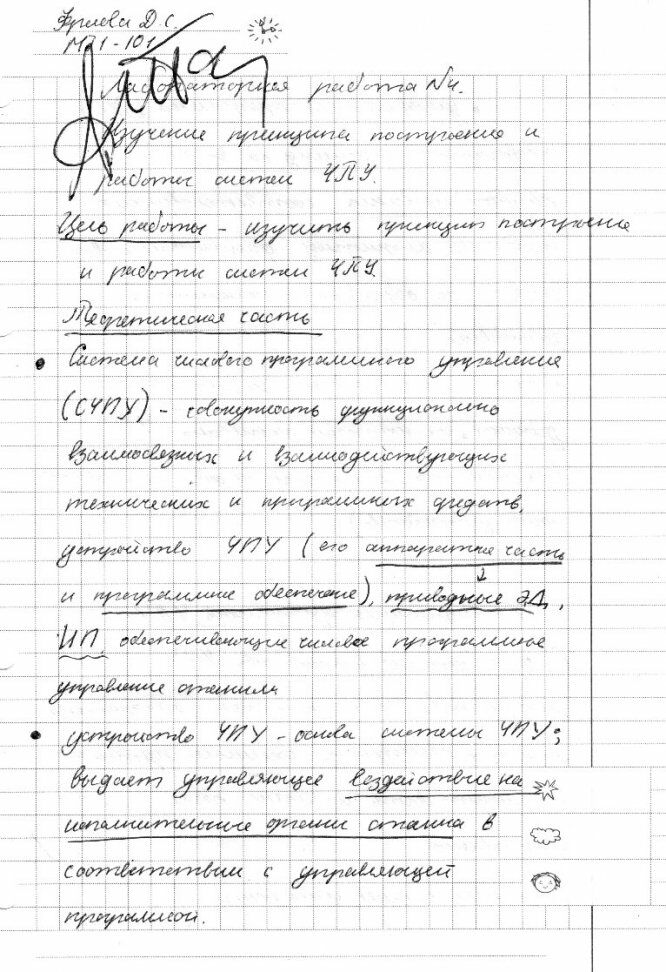 Д С.
МТ1-101
Лабораторная работа №4.
Изучение принципа построения и
работы систем ЧПУ.
Цель работы - изучить принцип построения
и работы систем ЧПУ.
Теоретическая часть
• Система числового программного управления
(СЧПУ) - совокупность функционально
взаимосвязных и взаимодействующих
технических и программных средств,
устройство ЧПУ (его аппаратная часть
и программное обеспечение), приводные ЭД,
ИП, обеспечивающие числовое программное
управление станком
• устройство ЧПУ - основа системы ЧПУ;
выдает управляющее воздействие на
исполнительные органы станка в
соответствии с управляющей
программой.